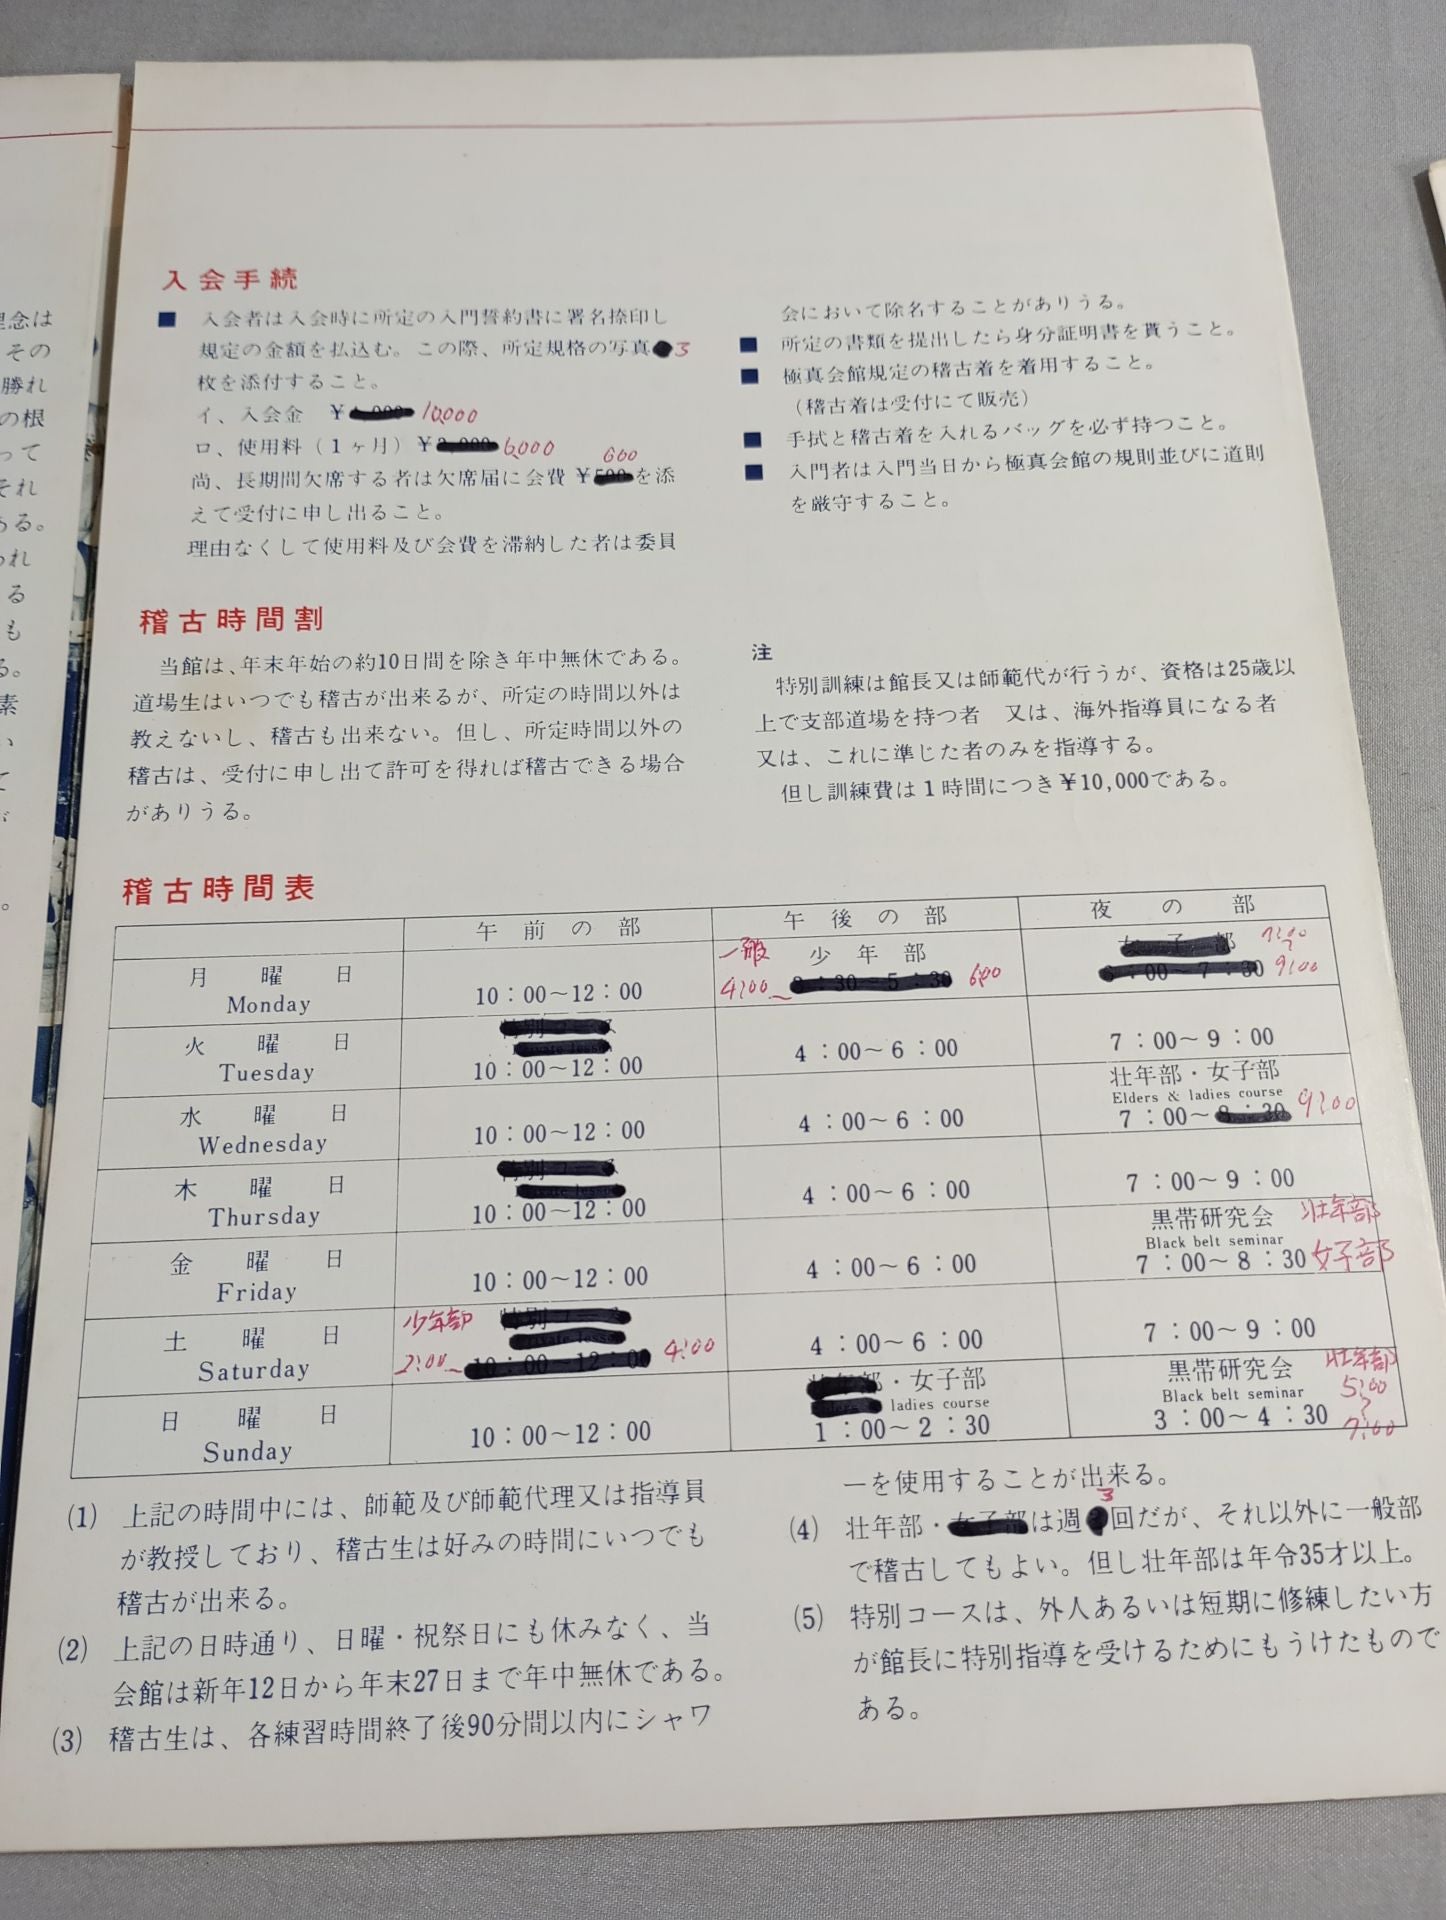 理念は
その
勝れ
の根
って
それ
ある。
われ
る
も
る。
素
い
て
が
。
入会手続
■ 入会者は入会時に所定の入門誓約書に署名捺印し
規定の金額を払込む。この際、所定規格の写真3
枚を添付すること。
イ、入会金 ¥ 10,000
ロ、使用料（1ヶ月）¥ 6,000
600
尚、長期間欠席する者は欠席届に会費 ¥500を添
えて受付に申し出ること。
理由なくして使用料及び会費を滞納した者は委員
会において除名することがありうる。
■ 所定の書類を提出したら身分証明書を貰うこと。
■ 極真会館規定の稽古着を着用すること。
（稽古着は受付にて販売）
■ 手拭と稽古着を入れるバッグを必ず持つこと。
■ 入門者は入門当日から極真会館の規則並びに道則
を厳守すること。
稽古時間割
当館は、年末年始の約10日間を除き年中無休である。
道場生はいつでも稽古が出来るが、所定の時間以外は
教えないし、稽古も出来ない。但し、所定時間以外の
稽古は、受付に申し出て許可を得れば稽古できる場合
がありうる。
注
特別訓練は館長又は師範代が行うが、資格は25歳以
上で支部道場を持つ者 又は、海外指導員になる者
又は、これに準じた者のみを指導する。
但し訓練費は1時間につき¥10,000である。
稽古時間表
午前の部 午後の部 夜の部
月曜日
Monday
10：00～12：00
一般 少年部
4:00～ 3：30～5：30 6:00
女子部 7:00
6：00～7：30 ～9:00
火曜日
Tuesday
特別コース
Private lesson
10：00～12：00
4：00～6：00
7：00～9：00
水曜日
Wednesday
10：00～12：00
4：00～6：00
壮年部・女子部
Elders & ladies course
7：00～8：30 9:00
木曜日
Thursday
特別コース
Private lesson
10：00～12：00
4：00～6：00
7：00～9：00
金曜日
Friday
10：00～12：00
4：00～6：00
黒帯研究会 壮年部
Black belt seminar
7：00～8：30 女子部
土曜日
Saturday
少年部 特別コース
Private lesson
2:00～ 10：00～12：00 4:00
4：00～6：00
7：00～9：00
日曜日
Sunday
10：00～12：00
壮年部・女子部
ladies course
1：00～2：30
黒帯研究会 壮年部
Black belt seminar 5:00
3：00～4：30 ～7:00
(1) 上記の時間中には、師範及び師範代理又は指導員
が教授しており、稽古生は好みの時間にいつでも
稽古が出来る。
(2) 上記の日時通り、日曜・祝祭日にも休みなく、当
会館は新年12日から年末27日まで年中無休である。
(3) 稽古生は、各練習時間終了後90分間以内にシャワ
ーを使用することが出来る。
(4) 壮年部・女子部は週3回だが、それ以外に一般部
で稽古してもよい。但し壮年部は年令35才以上。
(5) 特別コースは、外人あるいは短期に修練したい方
が館長に特別指導を受けるためにもうけたもので
ある。